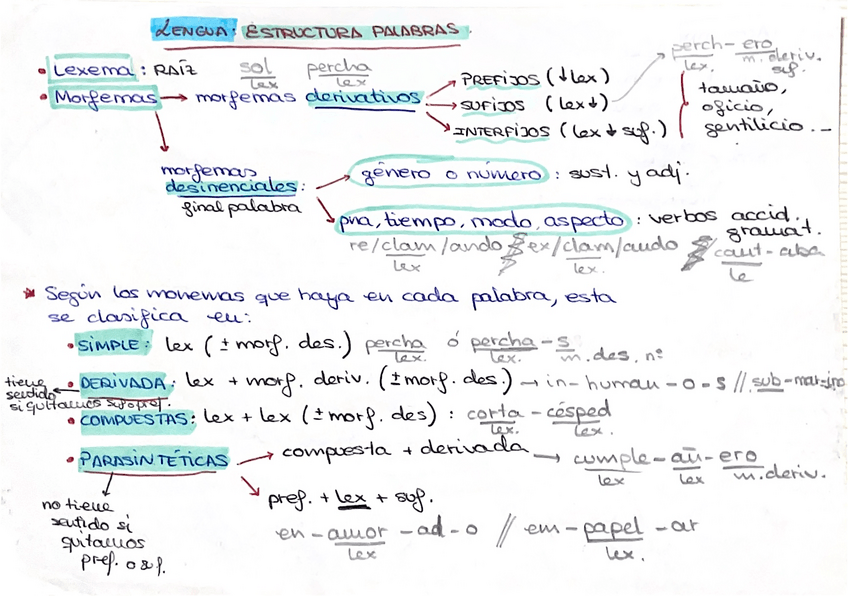 LENGUA: ESTRUCTURA PALABRAS.
• Lexema: RAÍZ sol percha
lex lex
• Morfemas → morfemas derivativos
PREFIJOS (↓lex)
SUFIJOS (lex↓)
INTERFIJOS (lex ↓ suf.)
perch-ero
lex. m.deriv.
suf.
tamaño,
oficio,
gentilicio...
morfemas
desinenciales:
final palabra
género o número: sust. y adj.
pna, tiempo, modo, aspecto: verbos accid.
gramat.
re/clam/ando ex/clam/ando cant-aba
lex lex. le
* Según los monemas que haya en cada palabra, esta
se clasifica en:
• SIMPLE: lex (± morf. des.) percha ó percha-s
lex. lex. m.des. nº
• DERIVADA: lex + morf. deriv. (± morf. des.) → in-human-o-s // sub-mar-ino
tiene
sentido
si quitamos suf o pref.
• COMPUESTAS: lex + lex (± morf. des) : corta-césped
lex. lex.
• PARASINTÉTICAS → compuesta + derivada → cumple-añ-ero
lex lex m.deriv.
pref. + lex + suf.
no tiene
sentido si
quitamos
pref. o suf.
en-amor-ad-o // em-papel-ar
lex lex.